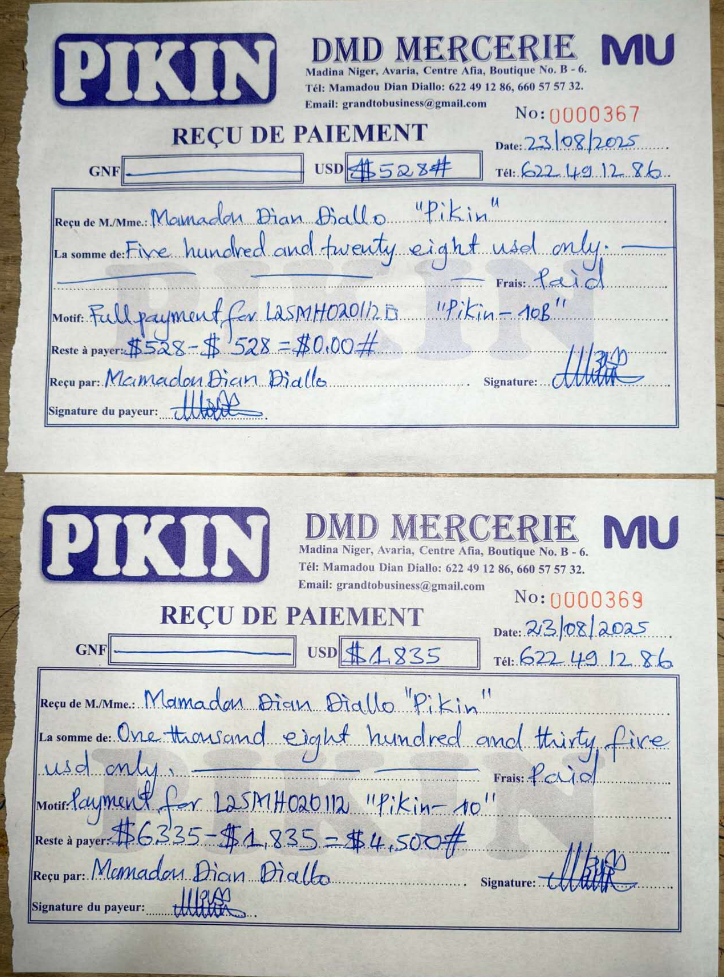 PIKIN
DMD MERCERIE MU
Madina Niger, Avaria, Centre Afia, Boutique No. B - 6.
Tél: Mamadou Dian Diallo: 622 49 12 86, 660 57 57 32.
Email: grandtobusiness@gmail.com
No: 0000367
REÇU DE PAIEMENT
Date: 23/08/2025
GNF USD $528#
Tél: 622 49 12 86
Reçu de M./Mme.: Mamadou Dian Diallo "Pikin"
La somme de: Five hundred and twenty eight usd only.
Frais: Paid
Motif: Full payment for L25MH020112B "Pikin-10B"
Reste à payer: $528-$528=$0.00#
Reçu par: Mamadou Dian Diallo Signature:
Signature du payeur:
PIKIN
PIKIN
DMD MERCERIE MU
Madina Niger, Avaria, Centre Afia, Boutique No. B - 6.
Tél: Mamadou Dian Diallo: 622 49 12 86, 660 57 57 32.
Email: grandtobusiness@gmail.com
No: 0000369
REÇU DE PAIEMENT
Date: 23/08/2025
GNF USD $1,835
Tél: 622 49 12 86
Reçu de M./Mme.: Mamadou Dian Diallo "Pikin"
La somme de: One thousand eight hundred and thirty five
usd only. Frais: Paid
Motif: Payment for L25MH020112 "Pikin-10"
Reste à payer: $6335-$1,835=$4,500#
Reçu par: Mamadou Dian Diallo Signature:
Signature du payeur:
PIKIN